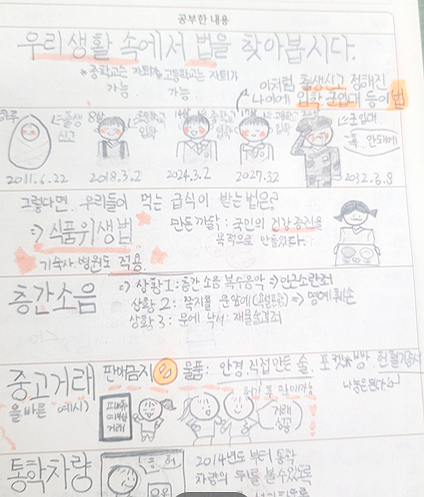 공부한 내용
우리 생활 속에서 법을 찾아봅시다.
중학교는 자퇴 고등학교는 자퇴가
가능 가능
이처럼 출생신고 정해진
나이에 입학 군입대 등이 법
출생
신고
8살
입학
입학
입학
군입대
2011.6.22 2018.3.2 2024.3.2 2027.3.2 2032.6.8
그렇다면.. 우리들이 먹는 급식이 받는 법은?
⇒ 식품위생법
만든까닭 : 국민의 건강증진을
목적으로 만들었다.
기숙사. 병원도 적용.
층간소음
⇒ 상황 1 : 층간 소음 복수음악 ⇒ 인근소란죄
상황 2 : 쪽지를 문앞에 ⇒ 명예훼손
상황 3 : 문에 낙서 : 재물손괴죄
중고거래
판매금지 물품 : 안경, 직접만든 술.
올바른 예시)
거래
거래
성공
통학차량
2014년도 부터 통학
차량의 뒤를 볼수있도록